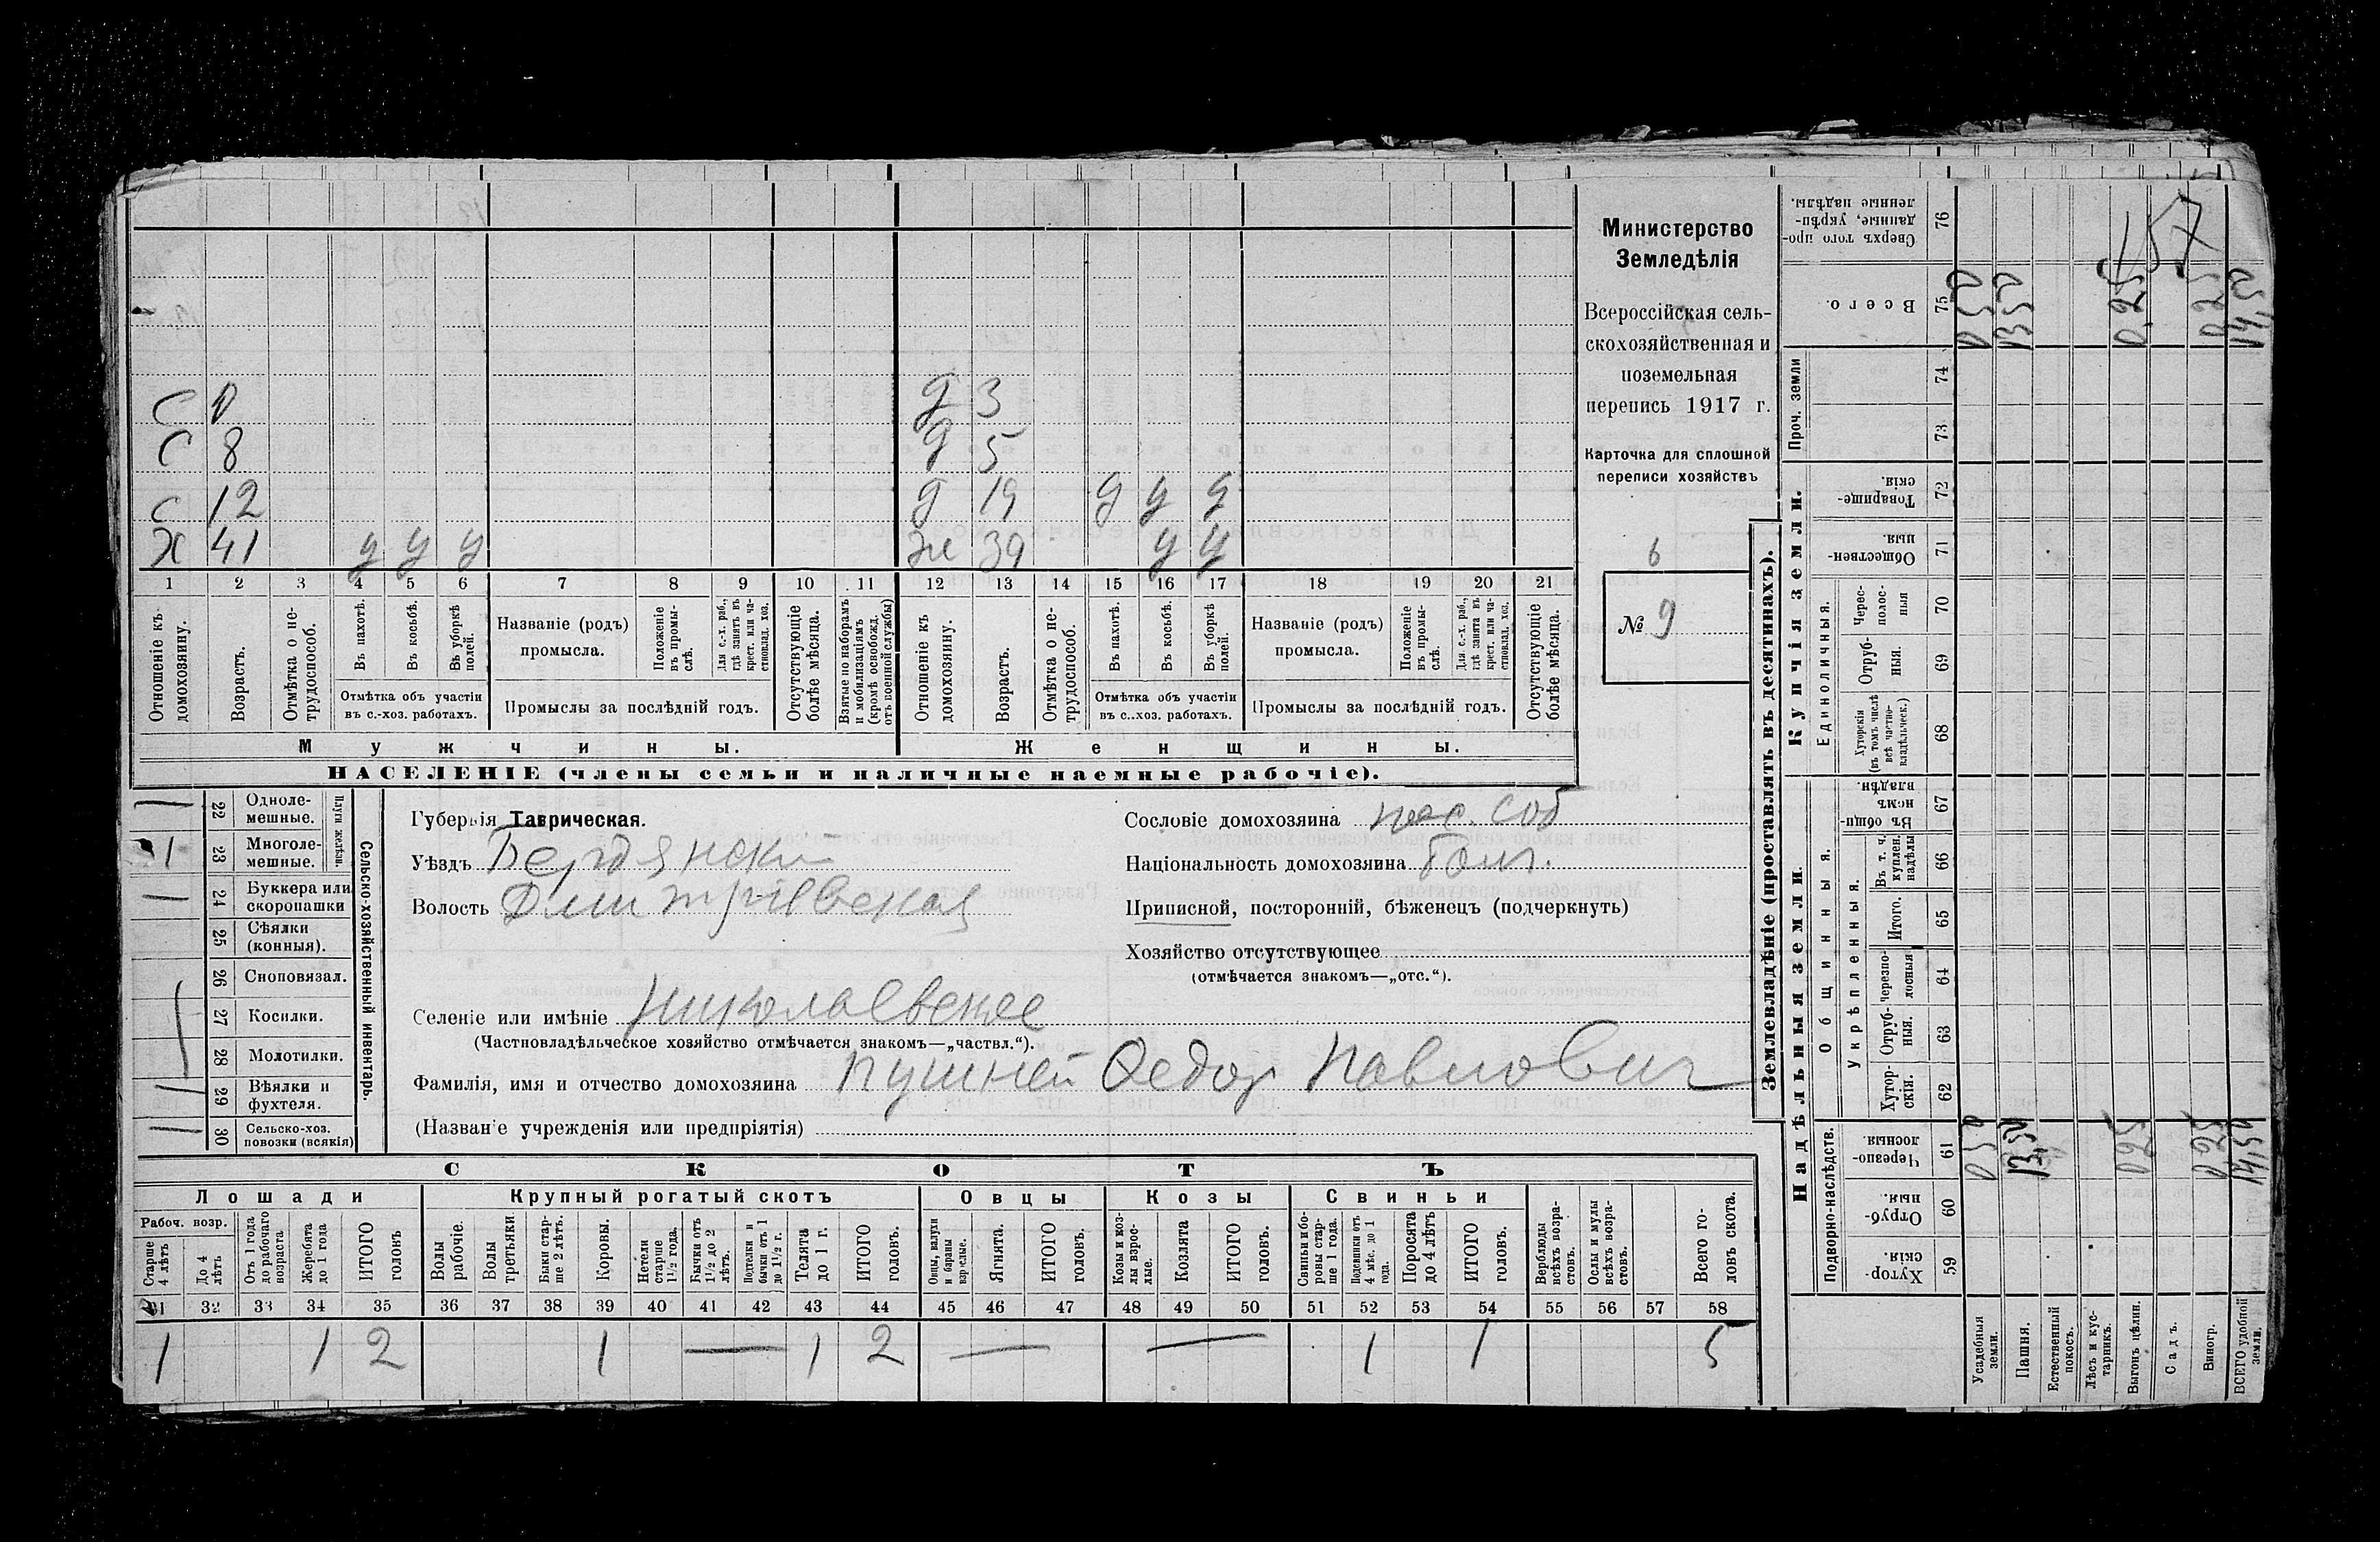 157
С 0 д 3
С 8 д 5
С 12 д 19 у у у
Х 41 у у у ж 39 у у
1 2 3 4 5 6 7 8 9 10 11 12 13 14 15 16 17 18 19 20 21
Отношеніе къ домохозяину.
Возрастъ.
Отмѣтка о нетрудоспособ.
Въ пахотѣ.
Въ косьбѣ.
Въ уборкѣ полей.
Отмѣтка объ участіи
въ с.-хоз. работахъ.
Названіе (родъ)
промысла.
Положеніе въ промыслѣ.
Для с.-х. раб., гдѣ занятъ въ крест. или частновлад. хоз.
Промыслы за послѣдній годъ.
Отсутствующіе болѣе мѣсяца.
Взятые по наборамъ и мобилизаціямъ (кромѣ освобожд. отъ военной службы)
Отношеніе къ домохозяину.
Возрастъ.
Отмѣтка о нетрудоспособ.
Въ пахотѣ.
Въ косьбѣ.
Въ уборкѣ полей.
Отмѣтка объ участіи
въ с..хоз. работахъ.
Названіе (родъ)
промысла.
Положеніе въ промыслѣ.
Для с.-х. раб., гдѣ занята въ крест. или частновлад. хоз.
Промыслы за послѣдній годъ.
Отсутствующіе болѣе мѣсяца.
Мужчины. Женщины.
НАСЕЛЕНІЕ (члены семьи и наличные наемные рабочіе).
Министерство
Земледѣлія
Всероссійская сель-
скохозяйственная и
поземельная
перепись 1917 г.
Карточка для сплошной
переписи хозяйствъ
6
№ 9
Сельско-хозяйственный инвентарь.
Плуги желѣзн.
22 Одноле-
мешные.
1 23 Многоле-
мешные.
24 Буккера или
скоропашки
25 Сѣялки
(конныя).
26 Сноповязал.
27 Косилки.
28 Молотилки.
29 Вѣялки и
фухтеля.
30 Сельско-хоз.
повозки (всякія)
Губернія Таврическая.
Уѣздъ Бердянский
Волость Дмитріевская
Селеніе или имѣніе Николаевское
(Частновладѣльческое хозяйство отмѣчается знакомъ—„частвл.“).
Фамилія, имя и отчество домохозяина Пушней Федор Павлович
(Названіе учрежденія или предпріятія)
Сословіе домохозяина пос. соб
Національность домохозяина Болг.
Приписной, посторонній, бѣженецъ (подчеркнуть)
Хозяйство отсутствующее
(отмѣчается знакомъ—„отс.“).
СКОТЪ
Лошади Крупный рогатый скотъ Овцы Козы Свиньи
Рабоч. возр.
Старше 4 лѣтъ
До 4 лѣтъ
Отъ 1 года до рабочаго возраста
Жеребята до 1 года
ИТОГО головъ
Волы рабочіе.
Волы третьяки
Быки старше 2 лѣтъ.
Коровы.
Нетели старше 1½ года.
Бычки отъ 1½ до 2 лѣтъ.
Подтелки и бычки отъ 1 до 1½ г.
Телята до 1 г.
ИТОГО головъ.
Овцы, валухи и бараны взрослые.
Ягнята.
ИТОГО головъ.
Козы и козлы взрослые.
Козлята
ИТОГО головъ.
Свиньи и боровы старше 1 года.
Подсвинки отъ 4 мѣс. до 1 года.
Поросята до 4 лѣтъ
ИТОГО головъ.
Верблюды всѣхъ возрастовъ.
Ослы и мулы всѣхъ возрастовъ.
Всего головъ скота.
31 32 33 34 35 36 37 38 39 40 41 42 43 44 45 46 47 48 49 50 51 52 53 54 55 56 57 58
1 1 2 1 — 1 2 — — 1 1 5
Землевладѣніе (проставлять въ десятинахъ).
Надѣльныя земли.
Купчія земли.
Проч. земли
Подворно-наслѣдств.
Общинныя.
Укрѣпленныя.
Единоличныя.
59 Хуторскія.
60 Отрубныя.
61 Черезполосныя. 0,50 13,50 0,25 0,25 14,50
62 Хуторскія.
63 Отрубныя.
64 Черезполосныя
65 Итого.
66 Въ т. ч. куплен. надѣлы
67 Въ общинномъ владѣн.
68 Хуторскія (въ томъ числѣ всѣ частновладѣльческ.)
69 Отрубныя.
70 Чересполосныя
71 Общественныя.
72 Товарищескія.
73
74
75 Всего. 0,50 13,50 0,25 0,25 14,50
76 Сверхъ того проданные, укрѣпленные надѣлы.
Усадебныя земли.
Пашня.
Естественный покосъ.
Лѣсъ и кустарникъ.
Выгонъ цѣлин.
Садъ.
Виногр.
ВСЕГО удобной земли.